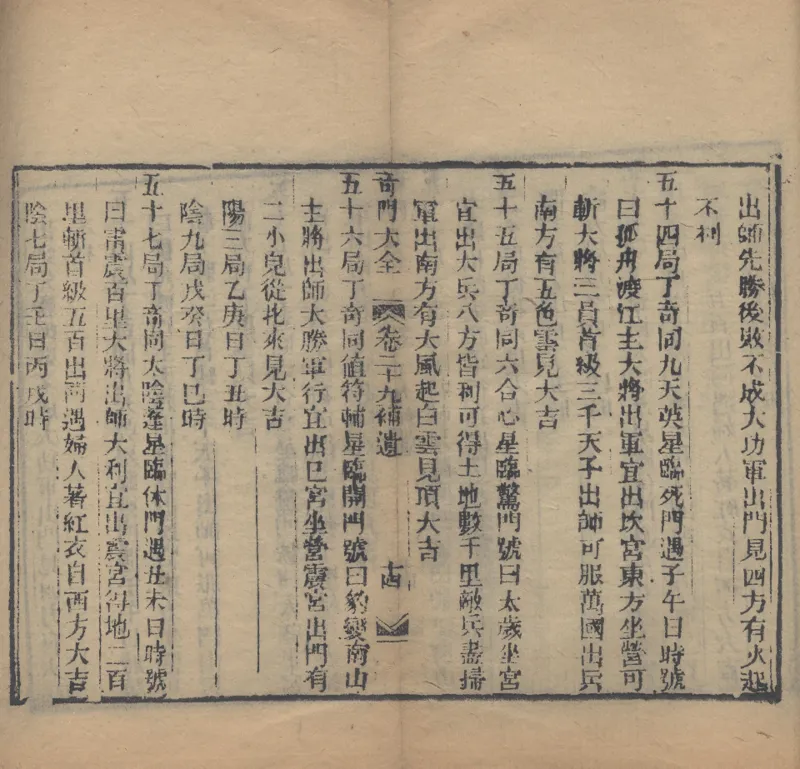 出師先勝後敗不成大功軍出門見四方有火起
不利
五十四局丁奇同九天英星臨死門遇子午日時號
曰孤舟渡江主大將出軍宜出坎宮東方坐營可
斬大將三員首級三千天子出師可服萬國出兵
南方有五色雲見大吉
五十五局丁奇同六合心星臨驚門號曰太歲坐宮
宜出大兵八方皆利可得土地數千里敵兵盡掃
軍出南方有大風起白雲見頂大吉
奇門大全 卷二十九補遺 十四
五十六局丁奇同值符輔星臨開門號曰豹變南山
主將出師大勝軍行宜出巳宮坐營震宮出門有
二小兒從北來見大吉
陽三局乙庚日丁丑時
陰九局戊癸日丁巳時
五十七局丁奇同太陰蓬星臨休門遇丑未日時號
曰雷震百里大將出師大利宜出震宮得地二百
里斬首級五百出門遇婦人著紅衣自西方大吉
陰七局丁壬日丙戌時